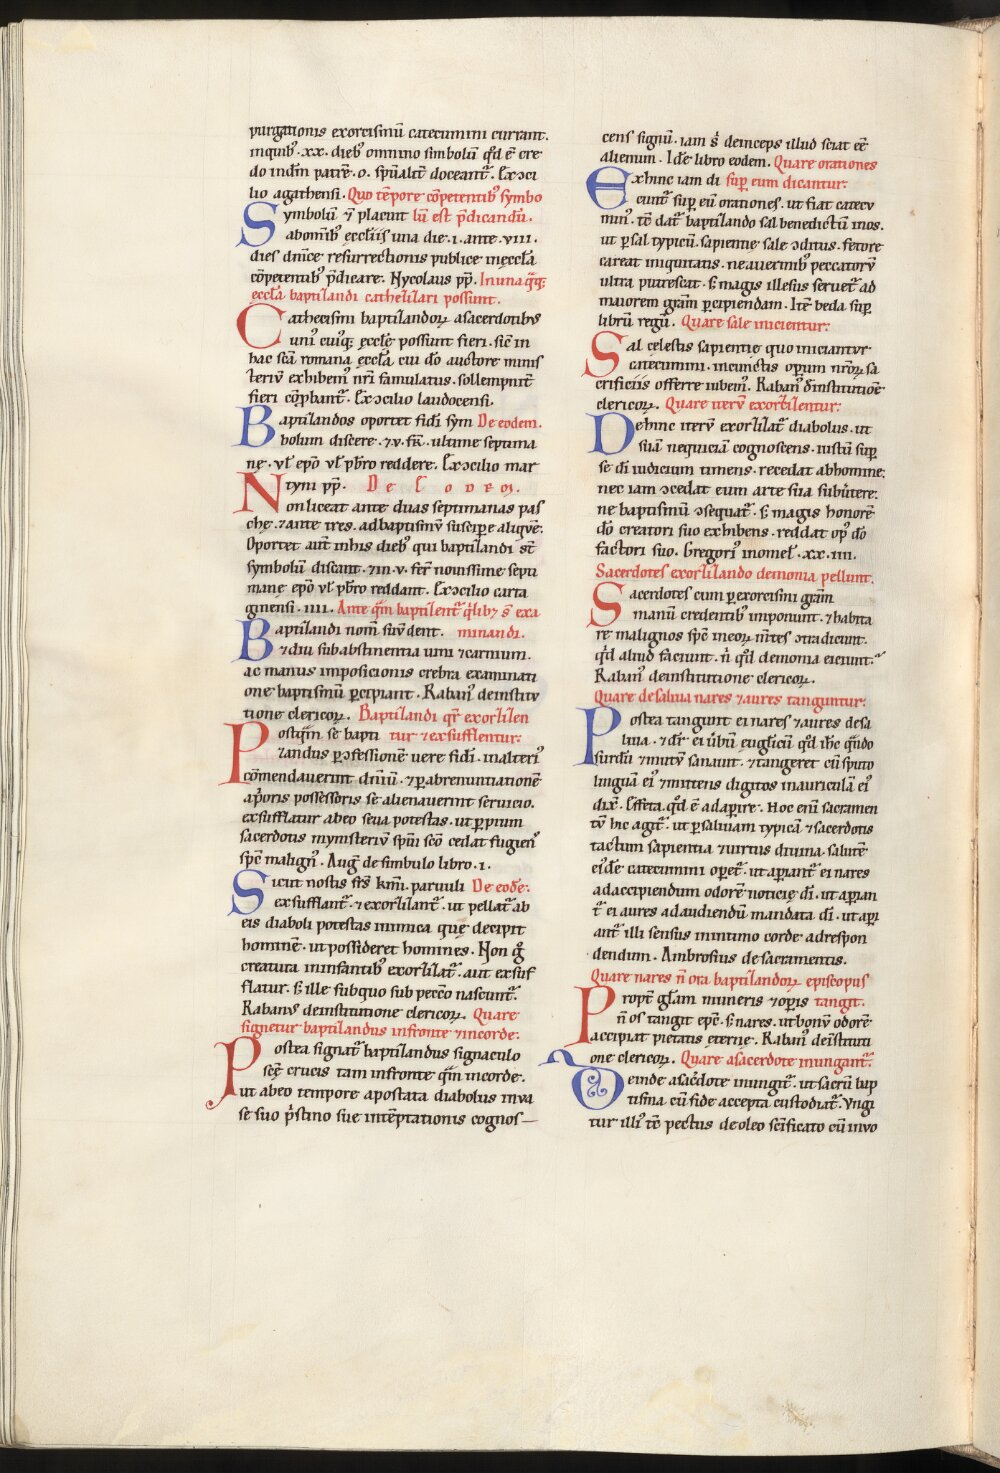 purgationis exorcismū catecumini currant.
inquib᷒ .xx. dieb᷒ omnino simbolū qd̄ ē cre
do indm̄ patrē .o. sp̄ualit̄ doceant᷑. Ex ↄci
lio agathensi. Quo tēpore cōpetentib᷒ symbo
Symbolū ⁊ placuit lū est p̄dicandū.
abomīb᷒ eccl̄iis una die .i. ante .viii.
dies dn̄ice resurrectionis publice ineccl̄a
cōpetentib᷒ p̄dicare. Nycolaus pp̄. In una q̄q;
eccl̄a baptizandi cathezizari possunt.
Cathecismi baptizandoꝝ asacerdotibus
uni᷒ cui᷒q; ęcclę possunt fieri. sic̄ in
hac sc̄a romana ęccl̄a cui do auctore minis
teriū exhibem᷒ nr̄i famulatus. sollempnit̄
fieri cōpbant᷑. Ex ↄcilio laudocensi.
Baptizandos oportet fidi sym De eodem.
bolum discere. ⁊ .v. fr̄. ultime septima
nę. ul̄ ep̄o ul̄ pb̄ro reddere. Ex ↄcilio mar
tyni pp̄. De Eodem.
Non liceat ante duas septimanas pas
che. ⁊ ante tres. adbaptismū suscipe aliquē.
Oportet aut̄ inhis dieb᷒ qui baptizandi st̄
symbolū discant. ⁊ in .v. fer̄ novissime septi
mane epō ul̄ pb̄ro reddant. Ex ↄcilio carta
ginensi .iiii. Ante q̄m baptizent᷑ q̄liby s̄t exa
Baptizandi nom̄ suū dent. minandi.
⁊ diu subabstinentia uini ⁊ carnium.
ac manus imposicionis crebra examinati
one baptismū pcipiant. Raban᷒ deinstitu
tione clericoꝝ. Baptizandi qr̄ exorzizen
Postq̄m se bapti tur ⁊ exsufflentur.
zandus p ↄfessionē uere fidi. inalteri᷒
cōmendauerint dn̄iū. ⁊ p abrenuntiationē
ap̄oris possessoris se alienauerint seruicio.
exsufflatur abeo seua potestas. ut p pium
sacerdotis mynisteriū spūi sc̄o cedat fugien᷒
spc̄ malign᷒. Aug̅ de simbulo libro .i.
Sicut nostis frs̄ km̄i. paruuli De eodē:
exsufflant᷑. ⁊ exorzizant᷑. ut pellat᷑ ab
eis diaboli potestas inimica quę decipit
hominē. ut possideret homines. Non g̊
creatura ininfantib᷒ exorzizat᷑. aut exsuf
flatur. s; ille subquo sub pecc̄o nascunt᷑.
Rabanus deinstitutione clericoꝝ. Quare
signetur baptizandus infronte ⁊ incorde:
Postea signat᷑ baptizandus signaculo
sc̄ę crucis tam infronte q̄m incorde.
ut abeo tempore apostata diabolus inua
se suo p̄stino sue intēptationis cognos
cens signū. iam s̄ deinceps illud sciat eē
alienum. Idē libro eodem. Quare orationes
Exhinc iam di sup eum dicantur:
cunt᷑ sup eū orationes. ut fiat catecu
min᷒. tc̄ dat᷑ baptizando sal benedictū inos.
ut p sal typicū. sapientie sale ↄditus. fetore
careat iniquitatis. neauermib᷒ peccatorū
ultra putrescat. s; magis illesus seruet᷑ ad
maiorem gr̄am pcipiendam. Itē beda sup
librū regū. Quare sale inicientur:
Sal celestis sapientię quo iniciantur
catecumini. incunctis opum nr̄oꝝ sa
crificiis offerre iubem᷒. Raban᷒ d̄institutiōe
clericoꝝ. Quare iterū exorzizentur:
Dehinc iterū exorzizat᷑ diabolus. ut
suā nequiciā cognoscens. iustū sup
se di iudicium timens. recedat abhomine:
nec iam ↄcedat eum arte sua subutere:
ne baptismū ↄsequat᷑. s; magis honorē
dō creatori suo exhibens. reddat op᷒ dō
factori suo. Gregori᷒ inomel̄ .xx.iiii.
Sacerdotes exorzizando demonia pellunt.
Sacerdotes cum p exorcismi gr̄am
manū credentib᷒ imponunt. ⁊ habita
re malignos spc̄ ineoꝝ m̄tes ↄtradicunt.
qd̄ aliud faciunt. n̄ qd̄ demonia eiciunt.
Raban᷒ deinstitutione clericoꝝ.
Quare desaliua nares ⁊ aures tanguntur:
Postea tangunt᷑ ei nares ⁊ aures desa
liua. ⁊ dr̄ ei ūbū euglicū qd̄ ihc̄ q̄ndo
surdū ⁊ mutū sanauit. ⁊ tangeret cū sputo
linguā ei᷒ ⁊ mittens digitos inauriculā ei᷒
dix̄. Effeta. qd̄ ē adapire. Hoc eni sacramen
tū hic agit᷑. ut p saliuam typicā ⁊ sacerdotis
tactum sapientia ⁊ uirtus diuina. salutē
ei᷒dē catecumini opet᷑. ut apiant᷑ ei nares
adaccipiendum odorē noticię di. ut apian
t᷑ ei aures adaudiendū mandata di. ut api
ant᷑ illi sensus inintimo corde adrespon
dendum. Ambrosius desacramentis.
Quare nares n̄ ora baptizandoꝝ episcopus
Propt̄ gl̄am muneris ⁊ opis tangit.
n̄ os tangit epc̄. s; nares. ut bonū odorē
accipiat pietatis eternę. Raban᷒ deīstituti
one clericoꝝ. Quare asacerdote inungant᷑:
Deinde asacdote inungit᷑. ut sacrū bap
tisma cū fide accepta custodiat᷑. Ungi
tur illi᷒ tc̄ pectus deoleo sc̄ificato cū inuo